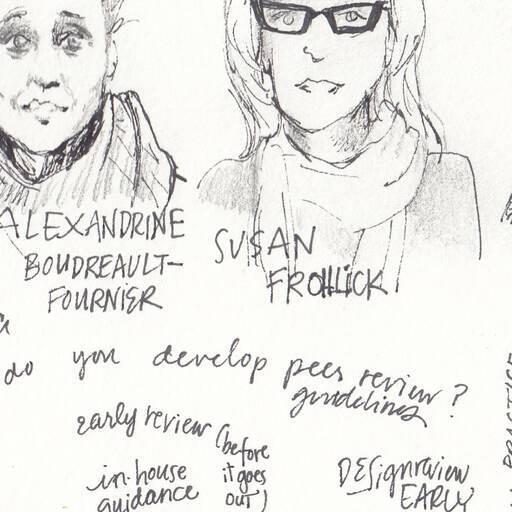 ALEXANDRINE
BOUDREAULT-
FOURNIER
SUSAN
FROHLICK
do you develop peer review
guidelines?
early review (before
it goes
out)
in-house
guidance
DESIGN review
EARLY
PRACTICE